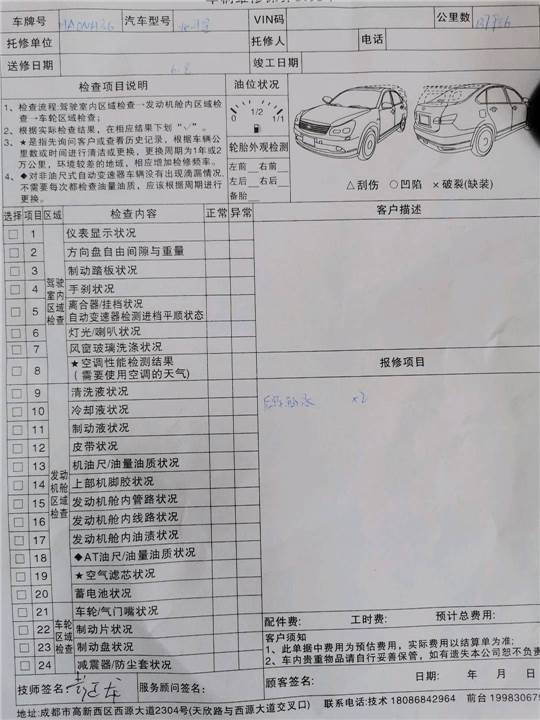 车牌号 汽车型号 VIN码 公里数
托修单位 托修人 电话
送修日期 竣工日期
检查项目说明
1、检查流程:驾驶室内区域检查→发动机舱内区域检
查→车轮区域检查;
2、根据实际检查结果,在相应结果下划“√”。
3、★是指先询问客户或查看历史记录,根据车辆公
里数或时间进行清洁或更换,更换周期为1年或2
万公里,环境较差的地域,相应增加检修频率。
4、◆对非油尺式自动变速器车辆没有出现滴漏情况,
不需要每次都检查油量油质,应该根据周期进行
更换。
油位状况
0 1/2 1/1
轮胎外观检测
左前 右前
左后 右后
备胎
△刮伤 ○凹陷 ×破裂(缺装)
选择 项目 区域 检查内容 正常 异常
驾驶室内区域检查
□ 1 仪表显示状况
□ 2 方向盘自由间隙与重量
□ 3 制动踏板状况
□ 4 手刹状况
□ 5 离合器/挂档状况
自动变速器检测进档平顺状态
□ 6 灯光/喇叭状况
□ 7 风窗玻璃洗涤状况
□ 8 ★空调性能检测结果
(需要使用空调的天气)
发动机舱区域检查
□ 9 清洗液状况
□ 10 冷却液状况
□ 11 制动液状况
□ 12 皮带状况
□ 13 机油尺/油量油质状况
□ 14 上部机脚胶状况
□ 15 发动机舱内管路状况
□ 16 发动机舱内线路状况
□ 17 发动机舱内油渍状况
□ 18 ◆AT油尺/油量油质状况
□ 19 ★空气滤芯状况
□ 20 蓄电池状况
车轮区域检查
□ 21 车轮/气门嘴状况
□ 22 制动片状况
□ 23 制动盘状况
□ 24 减震器/防尘套状况
客户描述
报修项目
×2
配件费: 工时费: 预计总费用:
客户须知
1、此单据中费用为预估费用,实际费用以结算单为准;
2、车内贵重物品请自行妥善保管,如有遗失本公司恕不负责
技师签名: 服务顾问签名: 顾客签名: 日期: 年 月 日
地址:成都市高新西区西源大道2304号(天欣路与西源大道交叉口) 联系电话:技术 18086842964 前台